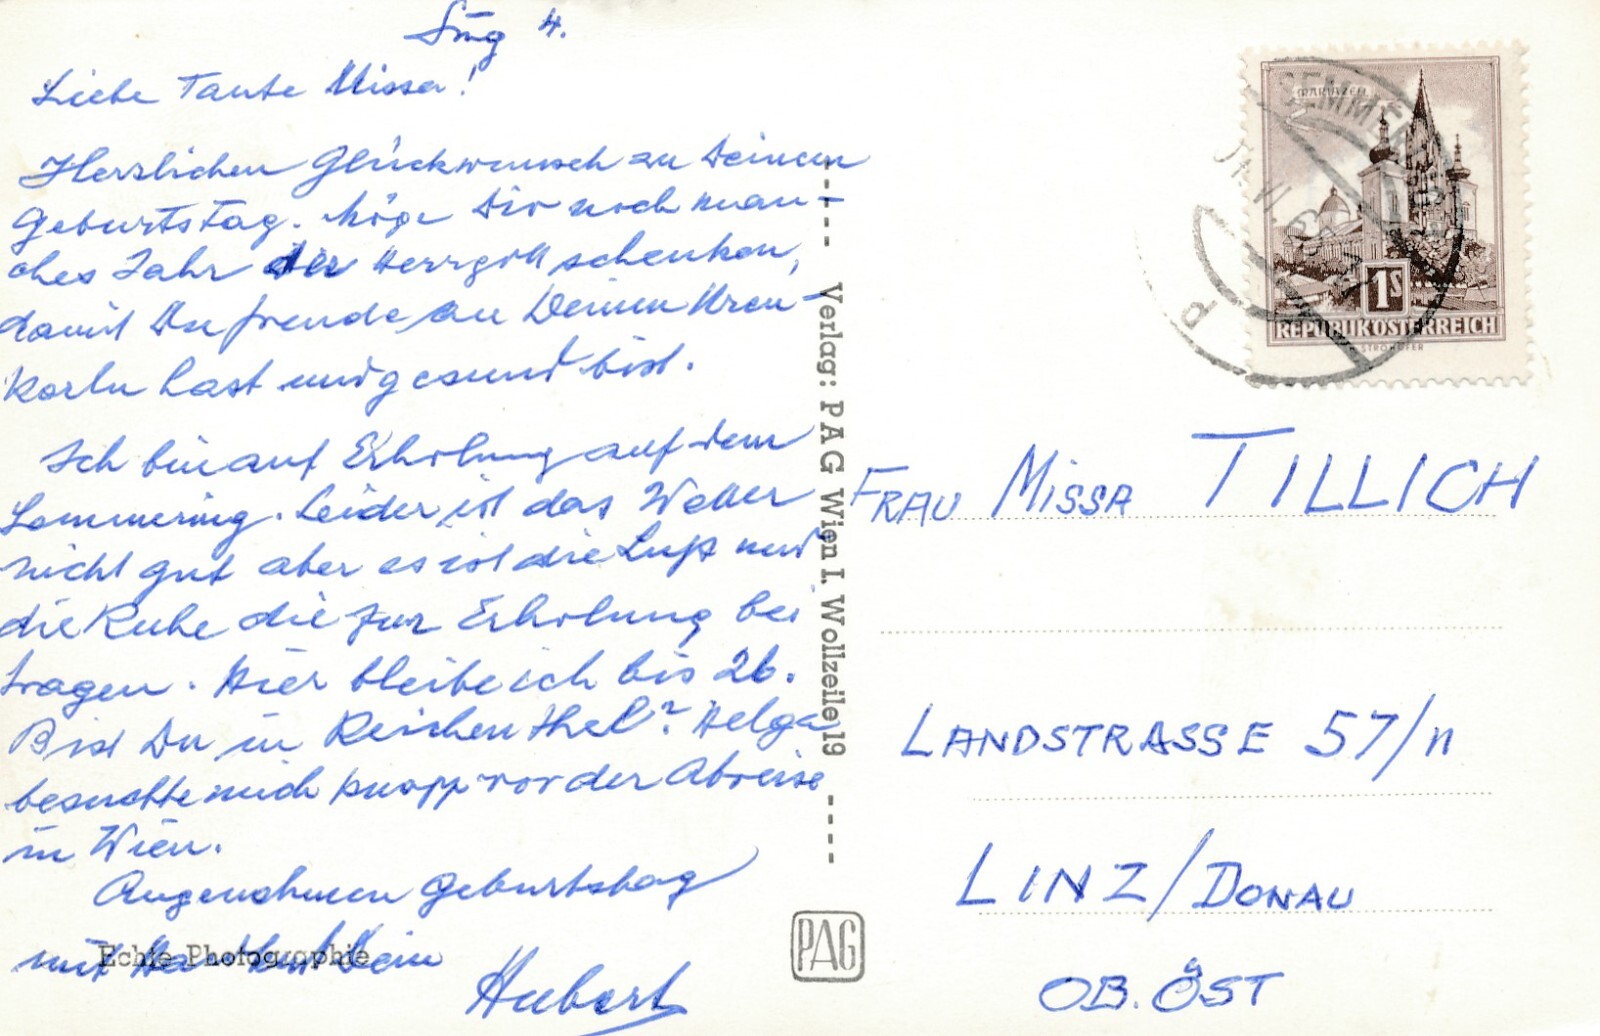 4.
Liebe Tante Missa!
Herzlichen Glückwunsch zu Deinem
Geburtstag. Möge Dir noch man-
ches Jahr der Herrgott schenken,
damit Du Freude an Deinen
hast und gesund bist.
Ich bin auf Erholung auf dem
Semmering. Leider ist das Wetter
nicht gut aber es ist die Luft und
die Ruhe die zur Erholung bei
tragen. Hier bleibe ich bis 26.
Bist Du in Reichenthal? Helga
besuchte mich knapp vor der Abreise
in Wien.
Angenehmen Geburtstag
mit Dein
Hubert
Echte Photographie
Verlag: PAG Wien I. Wollzeile 19
PAG
MARIAZELL
1S
REPUBLIK ÖSTERREICH
STROHOFER
SEMMERING
FRAU MISSA TILLICH
LANDSTRASSE 57/II
LINZ/DONAU
OB. ÖST